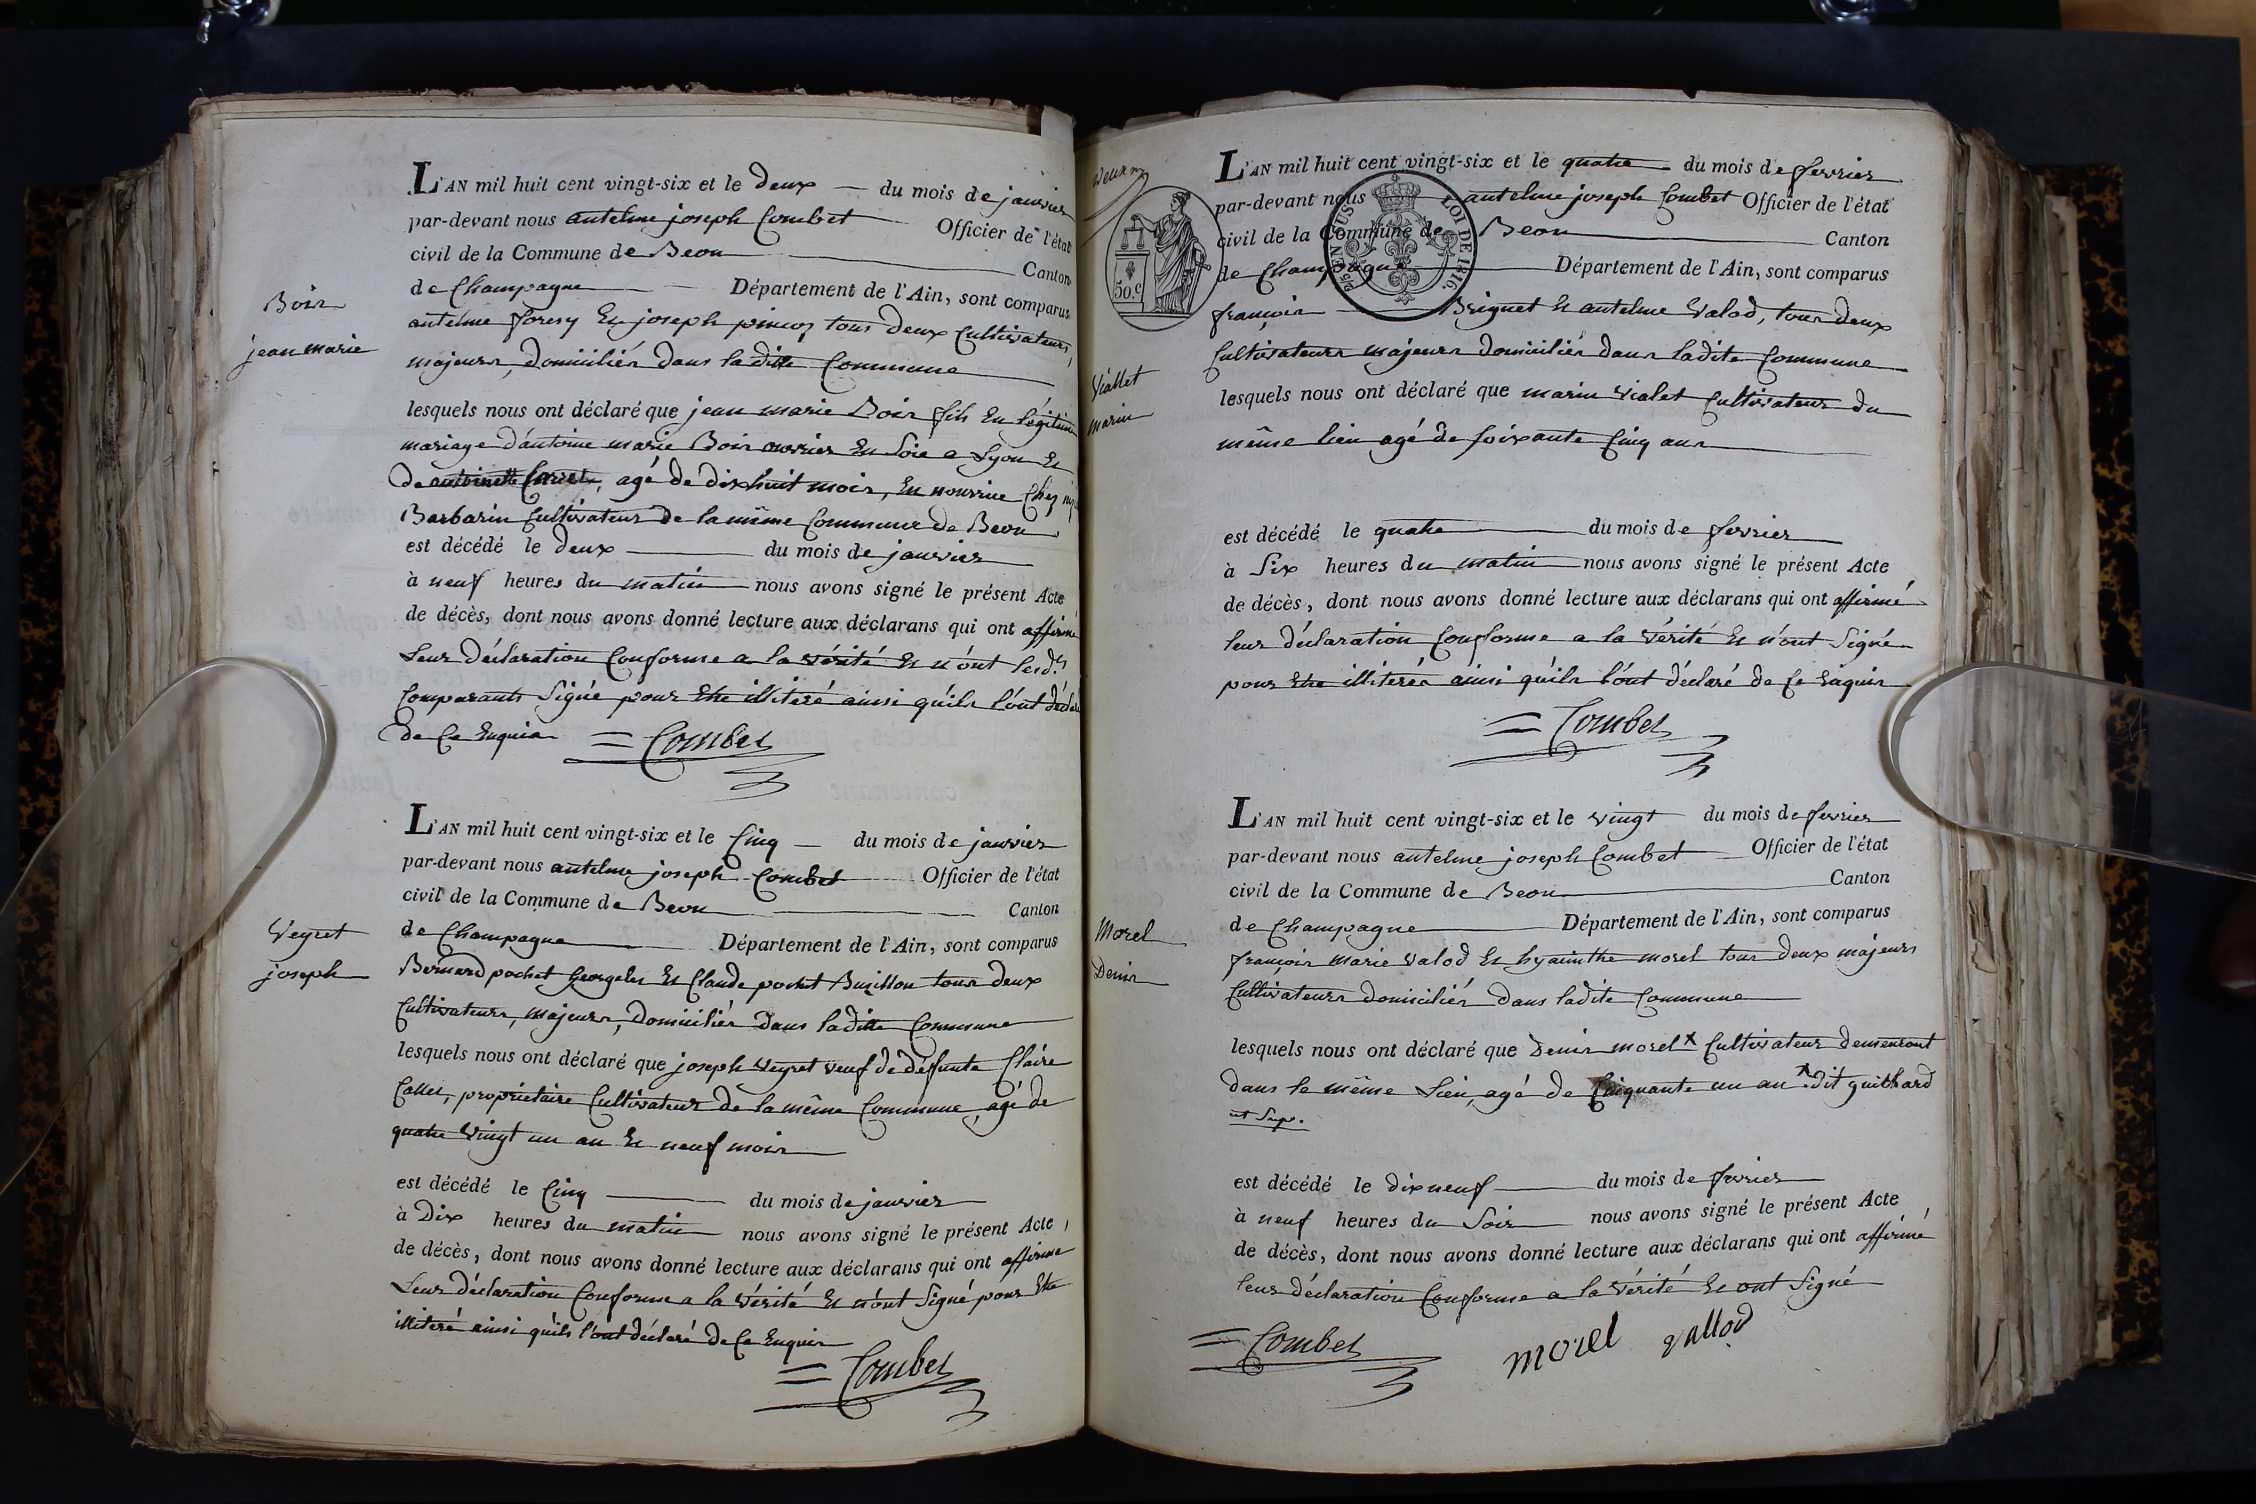 L'AN mil huit cent vingt-six et le deux du mois de janvier
par-devant nous antelme joseph Combet Officier de l'état
civil de la Commune de Beon Canton
de Champagne Département de l'Ain, sont comparus
antelme Et joseph tous deux Cultivateurs,
majeurs, domiciliés dans la ditte Commune
Boir
jean marie
lesquels nous ont déclaré que jean marie Boir fils En légitime
mariage d'antoine marie Boir ouvrier En Soie a Lyon Et
de antoinette, agé de dixhuit mois, En nourrice Chez
Barbarin Cultivateur de la même Commune de Beon
est décédé le deux du mois de janvier
à neuf heures du matin nous avons signé le présent Acte
de décès, dont nous avons donné lecture aux déclarans qui ont affirmé
Leur déclaration Conforme a la vérité Et n'ont lesd.ts
Comparants Signé pour Etre illiteré ainsi qu'ils l'ont déclaré
de Ce Enquis
Combet
L'AN mil huit cent vingt-six et le Cinq du mois de janvier
par-devant nous antelme joseph Combet Officier de l'état
civil de la Commune de Beon Canton
de Champagne Département de l'Ain, sont comparus
Bernard pochet Georgeles Et Claude pochet Buzillon tous deux
Cultivateurs, majeurs, Domiciliés dans la ditte Commune
Veyret
joseph
lesquels nous ont déclaré que joseph Veyret veuf de défunte Claire
Collet, propriétaire Cultivateur de la même Commune, agé de
quatre Vingt un an Et neuf mois
est décédé le Cinq du mois de janvier
à Dix heures du matin nous avons signé le présent Acte,
de décès, dont nous avons donné lecture aux déclarans qui ont affirmé
Leur déclaration Conforme a la Vérité Et n'ont Signé pour Etre
illiteré ainsi qu'ils l'ont déclaré de Ce Enquis
Combet
L'AN mil huit cent vingt-six et le quatre du mois de fevrier
par-devant nous antelme joseph Combet Officier de l'état
civil de la Commune de Beon Canton
de Champagne Département de l'Ain, sont comparus
50.c
LOI DE 1816.
françois Briguet Et antelme Valod, tous deux
Cultivateurs majeurs domiciliés dans ladite Commune
Viallet
marin
lesquels nous ont déclaré que marin Vialet Cultivateur du
même lieu agé de soixante Cinq ans
est décédé le quatre du mois de fevrier
à Six heures du matin nous avons signé le présent Acte
de décès, dont nous avons donné lecture aux déclarans qui ont affirmé
leur déclaration Conforme a la Vérité Et n'ont Signé
pour Etre illiterés ainsi qu'ils l'ont déclaré de Ce Enquis
Combet
L'AN mil huit cent vingt-six et le vingt du mois de fevrier
par-devant nous antelme joseph Combet Officier de l'état
civil de la Commune de Beon Canton
de Champagne Département de l'Ain, sont comparus
françois Marie Valod Et hyacinthe morel tous deux majeurs
Cultivateurs domiciliés dans ladite Commune
Morel
Denis
lesquels nous ont déclaré que Denis morel x Cultivateur demeurant
dans le même Lieu, agé de Cinquante un an x dit guilhard
ut Sup.
est décédé le dixneuf du mois de fevrier
à neuf heures du Soir nous avons signé le présent Acte
de décès, dont nous avons donné lecture aux déclarans qui ont affirmé
leur déclaration Conforme a la Vérité Et ont Signé
Combet morel vallod